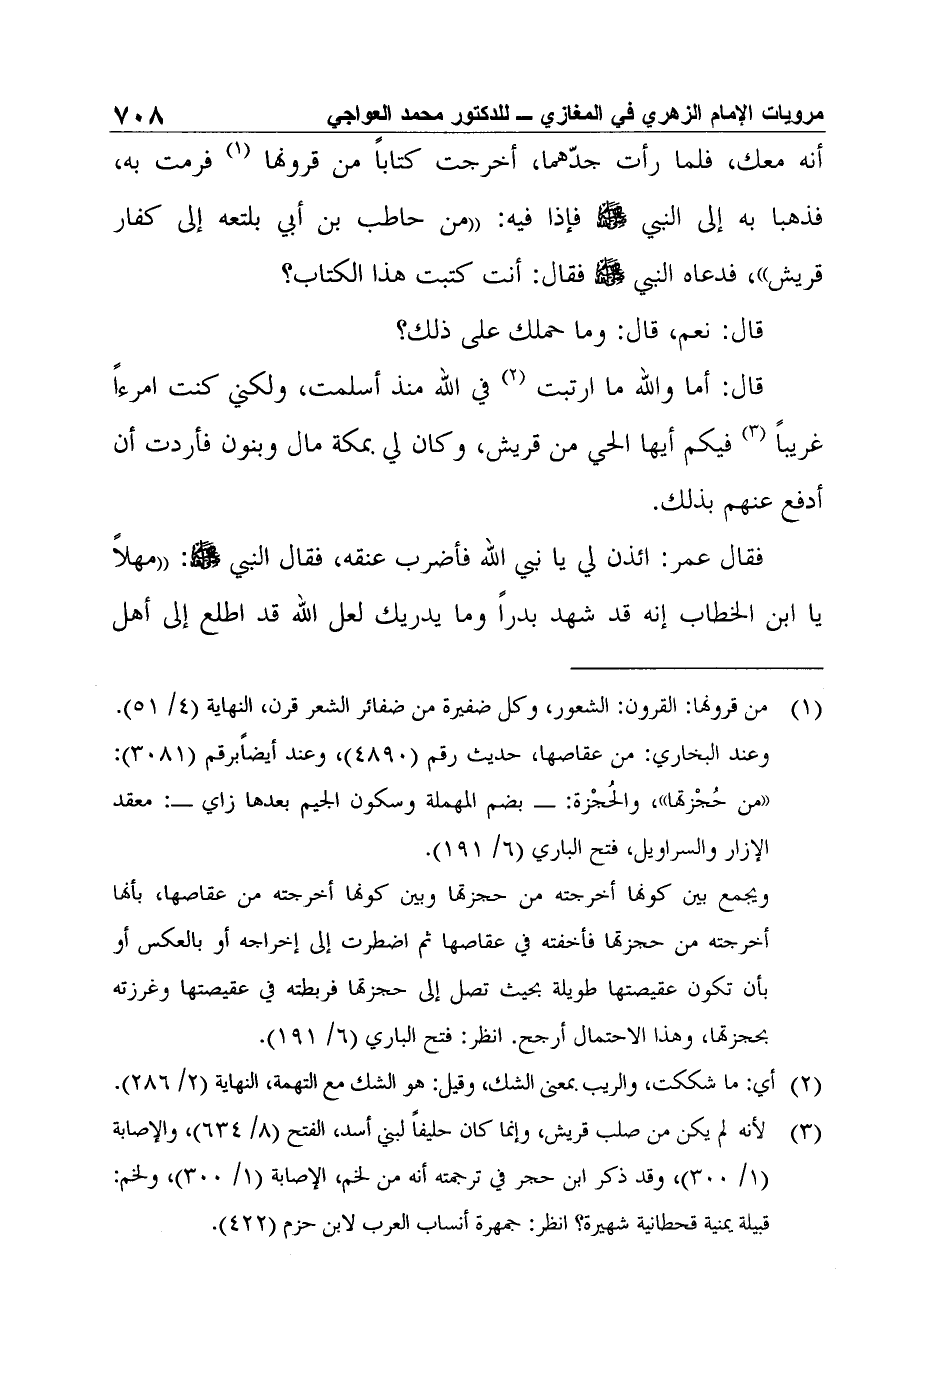 مرويات الإمام الزهري في المغازي ــ للدكتور محمد العواجي ٧٠٨
أنه معك، فلما رأت جدّهما، أخرجت كتاباً من قرونها (١) فرمت به،
فذهبا به إلى النبي ﷺ فإذا فيه: ((من حاطب بن أبي بلتعه إلى كفار
قريش))، فدعاه النبي ﷺ فقال: أنت كتبت هذا الكتاب؟
قال: نعم، قال: وما حملك على ذلك؟
قال: أما والله ما ارتبت (٢) في الله منذ أسلمت، ولكني كنت امرءاً
غريباً (٣) فيكم أيها الحي من قريش، وكان لي بمكة مال وبنون فأردت أن
أدفع عنهم بذلك.
فقال عمر: ائذن لي يا نبي الله فأضرب عنقه، فقال النبي ﷺ: ((مهلاً
يا ابن الخطاب إنه قد شهد بدراً وما يدريك لعل الله قد اطلع إلى أهل
(١) من قرونها: القرون: الشعور، وكل ضفيرة من ضفائر الشعر قرن، النهاية (٤/ ٥١).
وعند البخاري: من عقاصها، حديث رقم (٤٨٩٠)، وعند أيضاًبرقم (٣٠٨١):
((من حُجْزتها))، والحُجْزة: ــ بضم المهملة وسكون الجيم بعدها زاي ــ: معقد
الإزار والسراويل، فتح الباري (٦/ ١٩١).
ويجمع بين كونها أخرجته من حجزتها وبين كونها أخرجته من عقاصها، بأنها
أخرجته من حجزتها فأخفته في عقاصها ثم اضطرت إلى إخراجه أو بالعكس أو
بأن تكون عقيصتها طويلة بحيث تصل إلى حجزتها فربطته في عقيصتها وغرزته
بحجزتها، وهذا الاحتمال أرجح. انظر: فتح الباري (٦/ ١٩١).
(٢) أي: ما شككت، والريب بمعنى الشك، وقيل: هو الشك مع التهمة، النهاية (٢/ ٢٨٦).
(٣) لأنه لم يكن من صلب قريش، وإنما كان حليفاً لبني أسد، الفتح (٨/ ٦٣٤)، والإصابة
(١/ ٣٠٠)، وقد ذكر ابن حجر في ترجمته أنه من لخم، الإصابة (١/ ٣٠٠)، ولخم:
قبيلة يمنية قحطانية شهيرة؟ انظر: جمهرة أنساب العرب لابن حزم (٤٢٢).